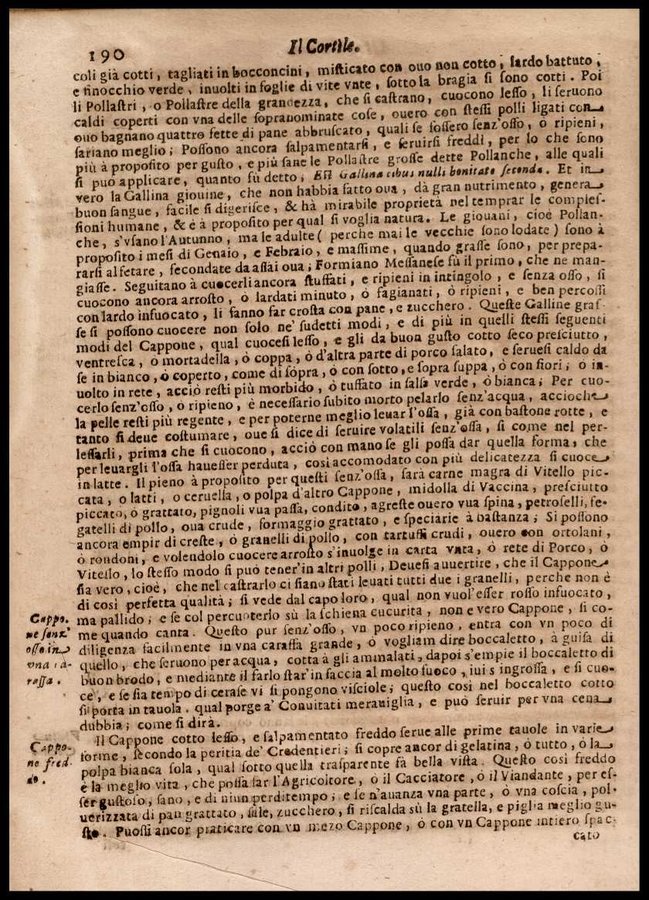 190
Il Cortile.
coli già cotti, tagliati in bocconcini, misticato con ouo non cotto, lardo battuto,
e finocchio verde, inuolti in foglie di vite vnte, sotto la bragia si sono cotti. Poi
li Pollastri, o Pollastre della grandezza, che si castrano, cuocono lesso, li seruono
caldi coperti con vna delle sopranominate cose, ouero con stessi polli ligati con
ouo bagnano quattro fette di pane abbruscato, quali se fossero senz'osso, ò ripieni,
sariano meglio; Possono ancora salpamentarsi, e seruirsi freddi, per lo che sono
più à proposito per gusto, e più sane le Pollastre grosse dette Pollanche, alle quali
si può applicare, quanto fù detto; Est Gallina cibus nulli bonitate secunda. Et in
vero la Gallina giouine, che non habbia fatto oua, dà gran nutrimento, genera
buon sangue, facile si digerisce, & hà mirabile proprietà nel temprar le comples-
sioni humane, & è à proposito per qual si voglia natura. Le giouani, cioè Pollan-
che, s'vsano l'Autunno, ma le adulte ( perche mai le vecchie sono lodate) sono à
proposito i mesi di Genaio, e Febraio, e massime, quando grasse sono, per prepa-
rarsi al fetare, secondate da assai oua; Formiano Messanese fù il primo, che ne man-
giasse. Seguitano à cuocerli ancora stuffati, e ripieni in intingolo, e senza osso, si
cuocono ancora arrosto, ò lardati minuto, ò fagianati, ò ripieni, e ben percossi
con lardo infuocato, li fanno far crosta con pane, e zucchero. Queste Galline gras-
se si possono cuocere non solo ne' sudetti modi, e di più in quelli stessi seguenti
modi del Cappone, qual cuocesi lesso, e gli da buon gusto cotto seco presciutto,
ventresca, o mortadella, ò coppa, ò d'altra parte di porco salato, e seruesi caldo da
se in bianco, ò coperto, come di sopra, ò con sotto, e sopra suppa, ò con fiori; o in-
uolto in rete, acciò resti più morbido, ò tuffato in salsa verde, ò bianca; Per cuo-
cerlo senz'osso, o ripieno, è necessario subito morto pelarlo senz'acqua, accioche
la pelle resti più regente, e per poterne meglio leuar l'ossa, già con bastone rotte, e
tanto si deue costumare, oue si dice di seruire volatili senz'ossa, si come nel per-
lessarli, prima che si cuocono, acciò con mano se gli possa dar quella forma, che
per leuargli l'ossa hauesser perduta, così accomodato con più delicatezza si cuoce
in latte. Il pieno à proposito per questi senz'ossa, sarà carne magra di Vitello pic-
cata, o latti, o ceruella, o polpa d'altro Cappone, midolla di Vaccina, presciutto
piccato, ò grattato, pignoli vua passa, condito, agreste ouero vua spina, petroselli, fe-
gatelli di pollo, oua crude, formaggio grattato, e speciarie à bastanza; Si possono
ancora empir di creste, ò granelli di pollo, con tartuffi crudi, ouero con ortolani,
ò rondoni, e volendolo cuocere arrosto s'inuolge in carta vnta, ò rete di Porco, ò
Vitello, lo stesso modo si può tener'in altri polli, Deuesi auuertire, che il Cappone
sia vero, cioè, che nel castrarlo ci siano stati leuati tutti due i granelli, perche non è
di così perfetta qualità; si vede dal capo loro, qual non vuol'esser rosso infuocato,
ma pallido; e se col percuoterlo sù la schiena cucurita, non e vero Cappone, si co-
me quando canta. Questo pur senz'osso, vn poco ripieno, entra con vn poco di
diligenza facilmente in vna caraffa grande, ò vogliam dire boccaletto, à guisa di
quello, che seruono per acqua, cotta à gli ammalati, dapoi s'empie il boccaletto di
buon brodo, e mediante il farlo star'in faccia al molto fuoco, iui s'ingrossa, e si cuo-
ce, e se sia tempo di cerase vi si pongono visciole; questo così nel boccaletto cotto
si porta in tauola, qual porge a' Conuitati merauiglia, e può seruir per vna cena
dubbia; come si dirà.
Cappo-
ne senz'
osso in
vna ca-
raffa.
Il Cappone cotto lesso, e salpamentato freddo serue alle prime tauole in varie
forme, secondo la peritia de' Credentieri; si copre ancor di gelatina, ò tutto, ò la
polpa bianca sola, qual sotto quella trasparente fà bella vista. Questo così freddo
è la meglio vita, che possa far l'Agricoltore, ò il Cacciatore, ò il Viandante, per es-
ser gustoso, sano, e di niun perditempo; e se n'auanza vna parte, ò vna coscia, pol-
uerizzata di pan grattato, sale, zucchero, si riscalda sù la gratella, e piglia meglio gu-
sto. Puossi ancor praticare con vn mezo Cappone, ò con vn Cappone intiero spac-
Cappo-
ne fred-
do.
cato